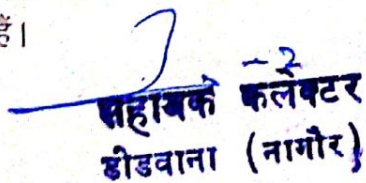 हैं।
- 2
सहायक कलेक्टर
डीडवाना (नागौर)